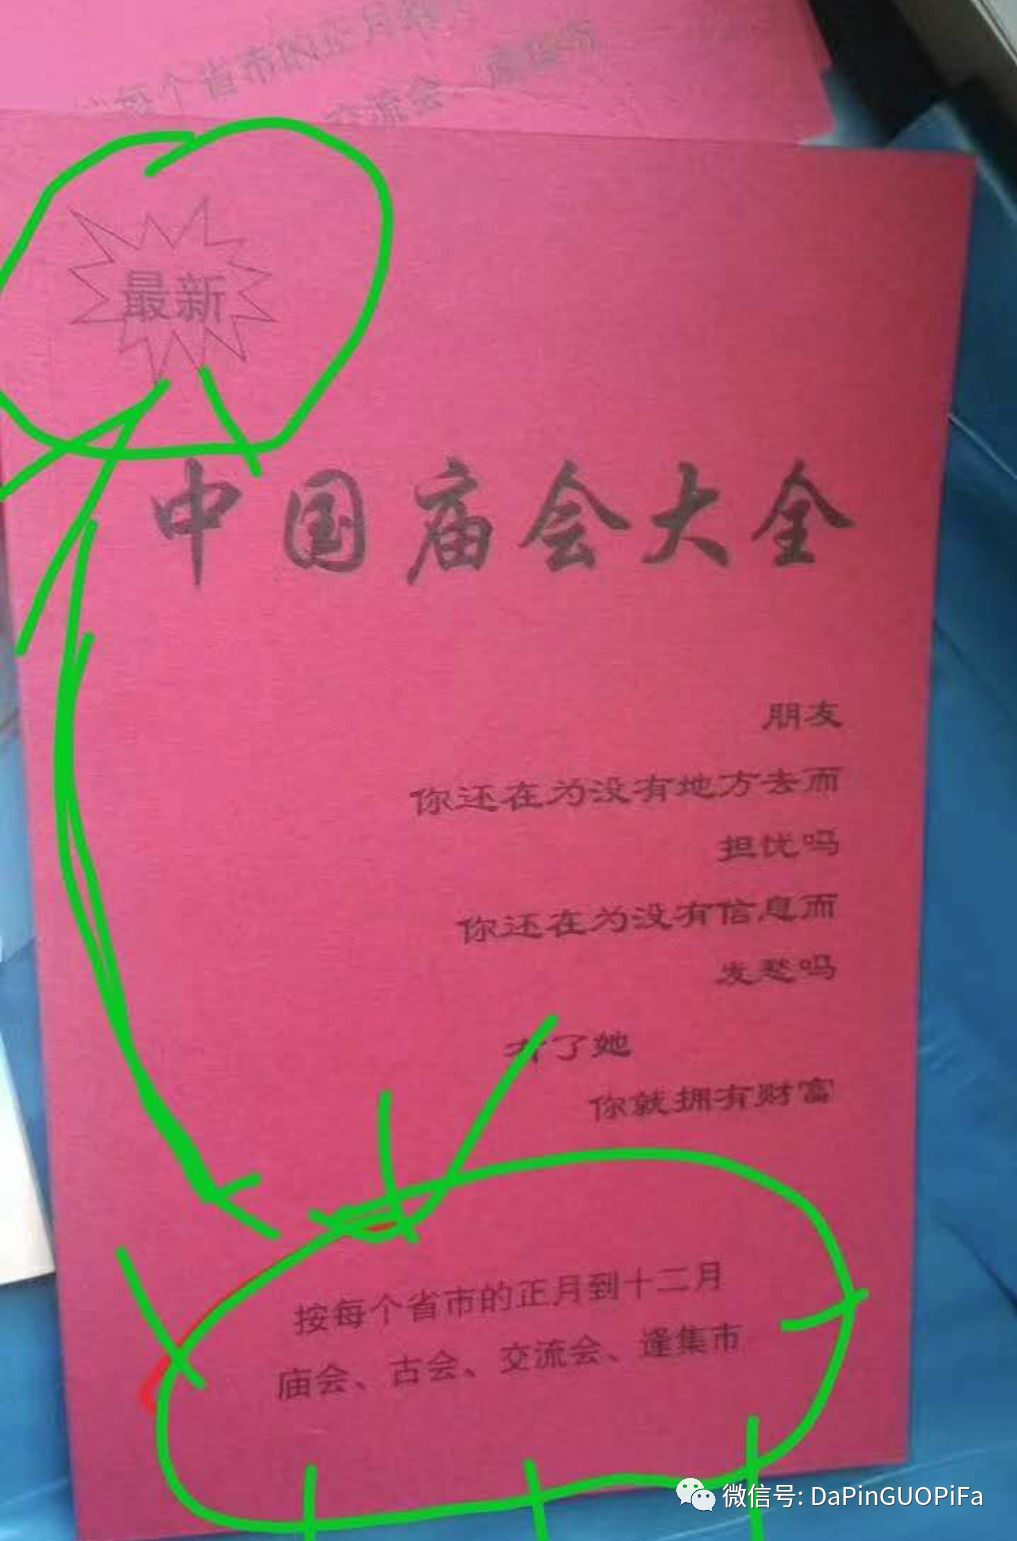 每个省市的正月
交流会、逢集市
最新
中国庙会大全
朋友
你还在为没有地方去而
担忧吗
你还在为没有信息而
发愁吗
有了她
你就拥有财富
按每个省市的正月到十二月
庙会、古会、交流会、逢集市
微信号: DaPinGUOPiFa